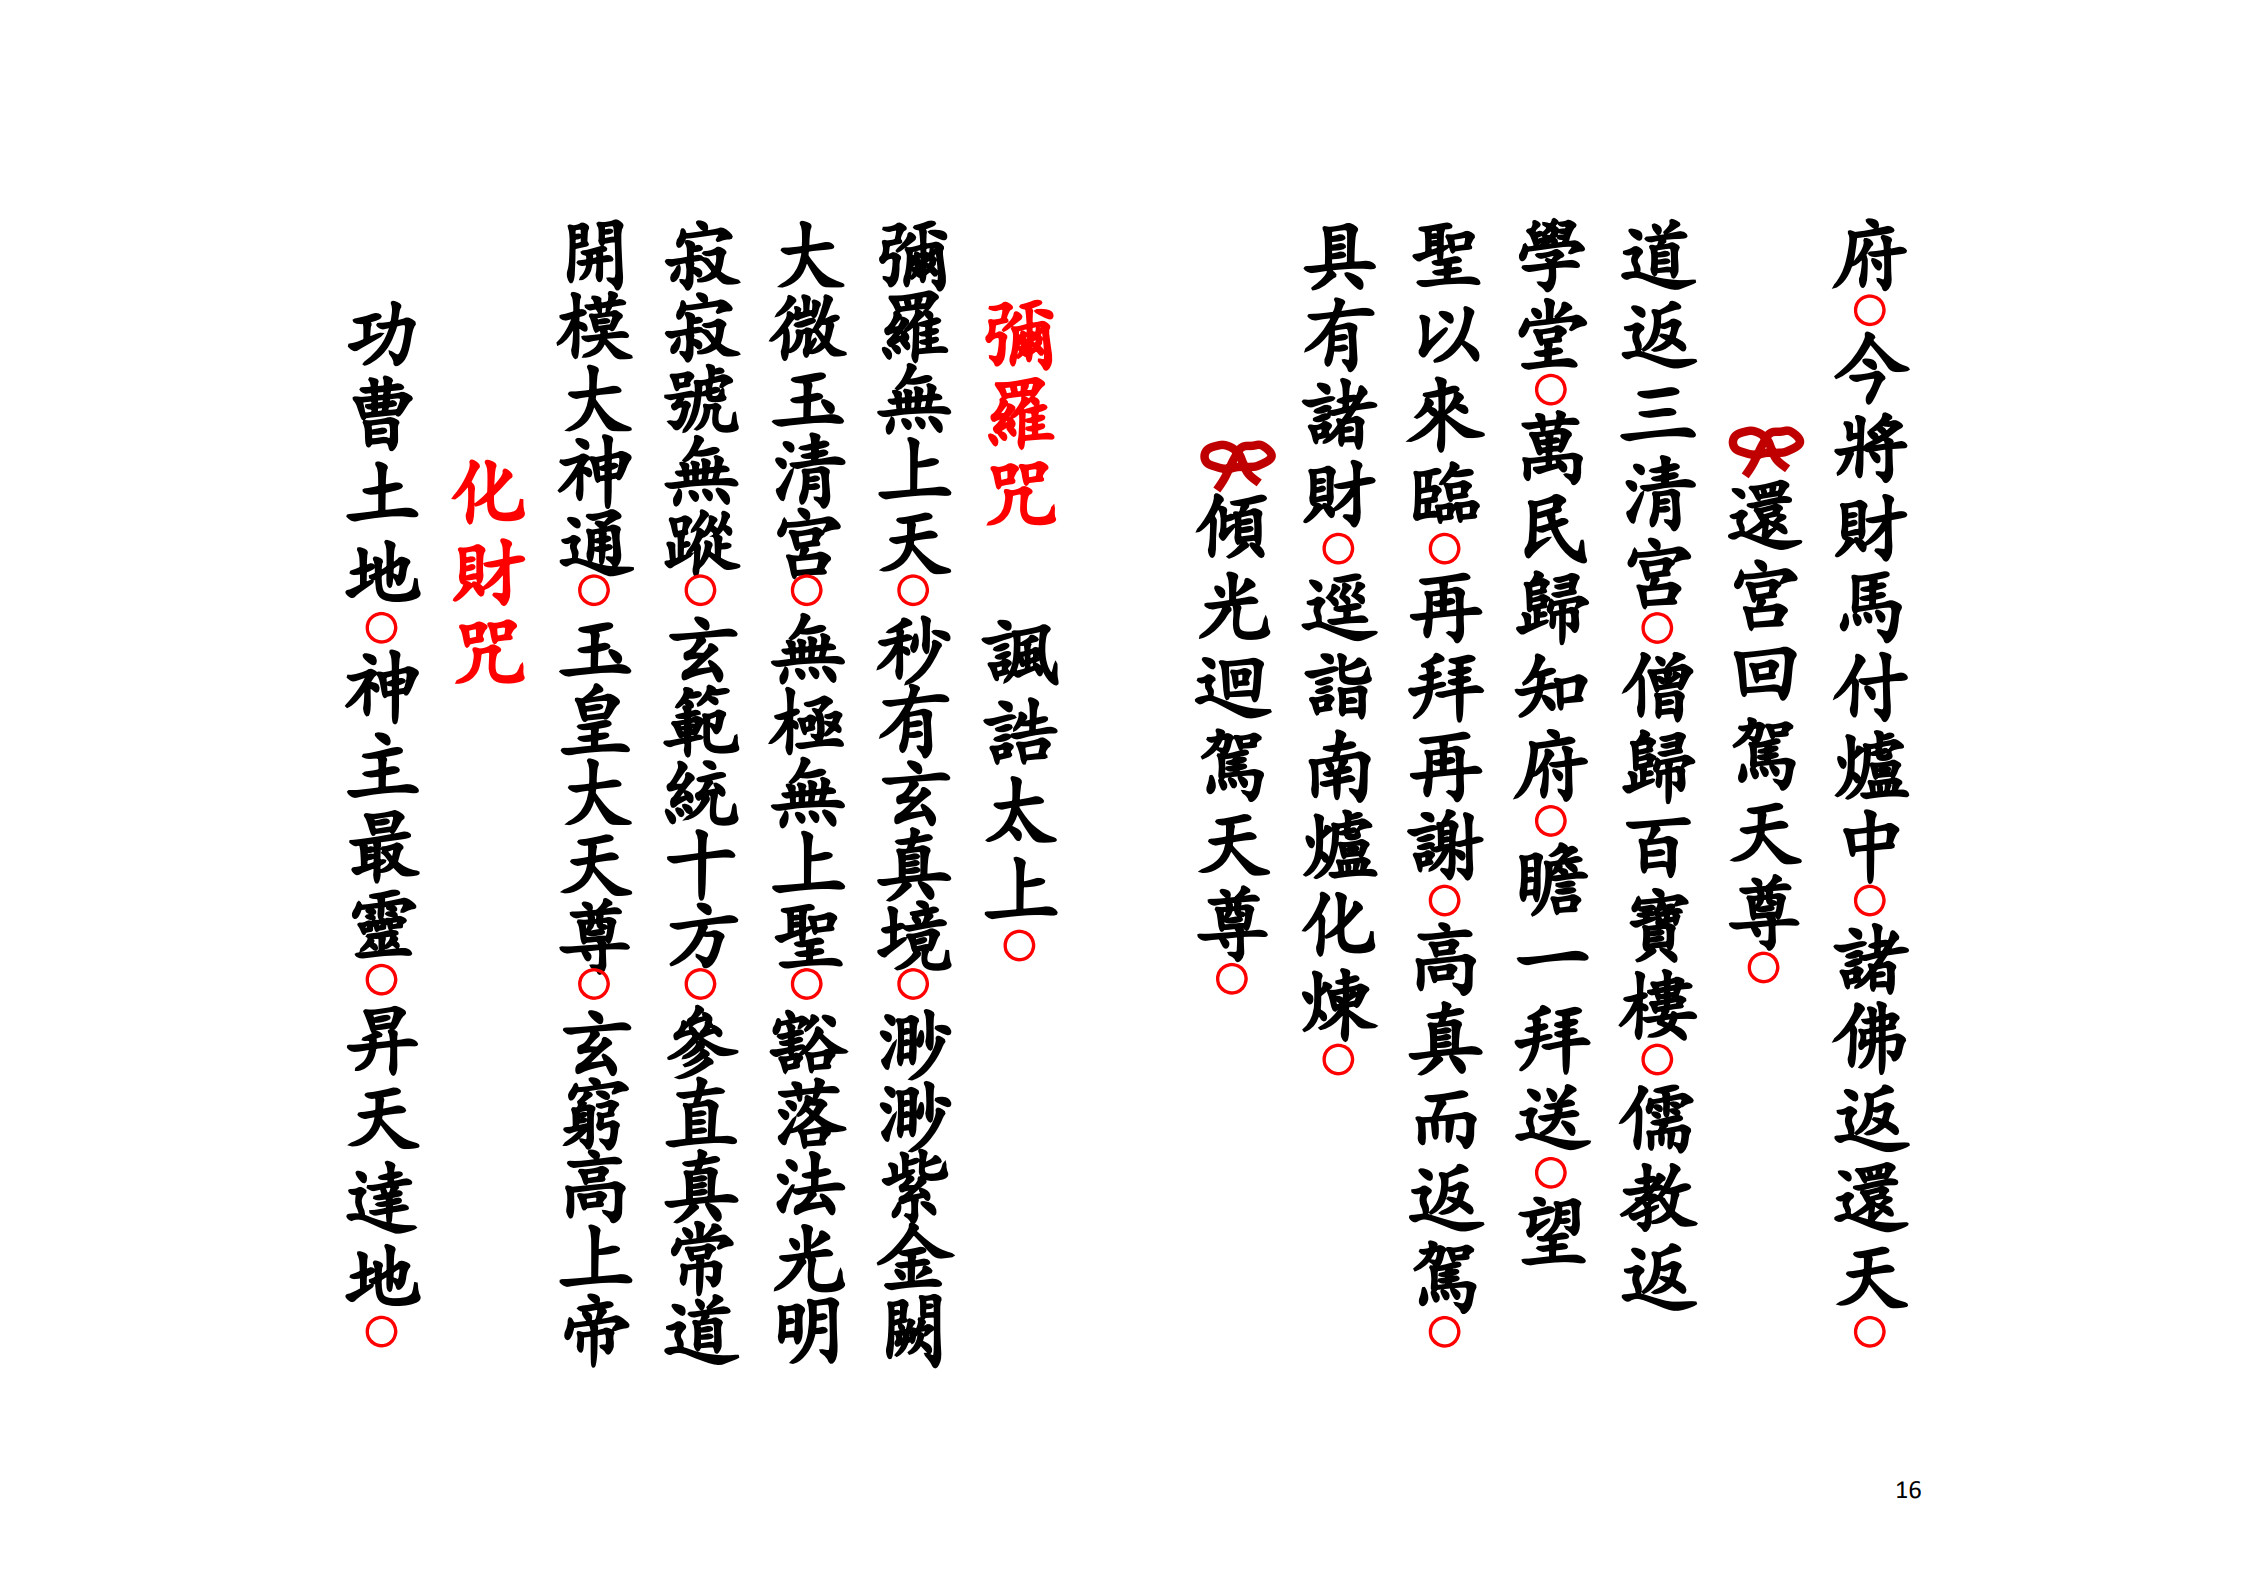 府○今將財馬付爐中○諸佛返還天○
還宮回駕天尊○
道返三清宮○僧歸百寶樓○儒教返
學堂○萬民歸知府○瞻一拜送○望
聖以來臨○再拜再謝○高真而返駕○
具有諸財○逕詣南爐化煉○
傾光迴駕天尊○
彌羅咒 諷誥太上○
彌羅無上天○秒有玄真境○渺渺紫金闕
大微玉清宮○無極無上聖○豁落法光明
寂寂號無蹤○玄範統十方○參直真常道
開模大神通○玉皇大天尊○玄窮高上帝
化財咒
功曹土地○神主最靈○昇天達地○
16